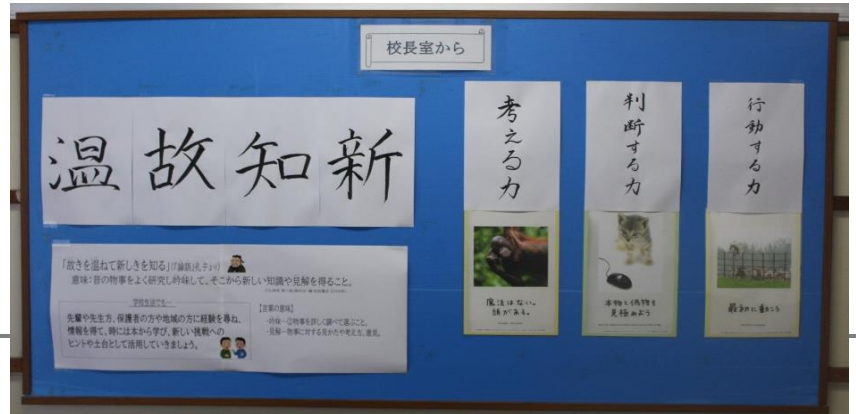 校長室から
温故知新
「故きを温ねて新しきを知る」(『論語』孔子より)
意味:昔の物事をよく研究し吟味して、そこから新しい知識や見解を得ること。
学校生活でも…
先輩や先生方、保護者の方や地域の方に経験を尋ね、
情報を得て、時には本から学び、新しい挑戦への
ヒントや土台として活用していきましょう。
【言葉の意味】
・吟味…②物事を詳しく調べて選ぶこと。
・見解…物事に対する見かたや考え方。意見。
考える力
魔法はない。
頭がある。
判断する力
本物と偽物を
見極めよう
行動する力
最初に動こう